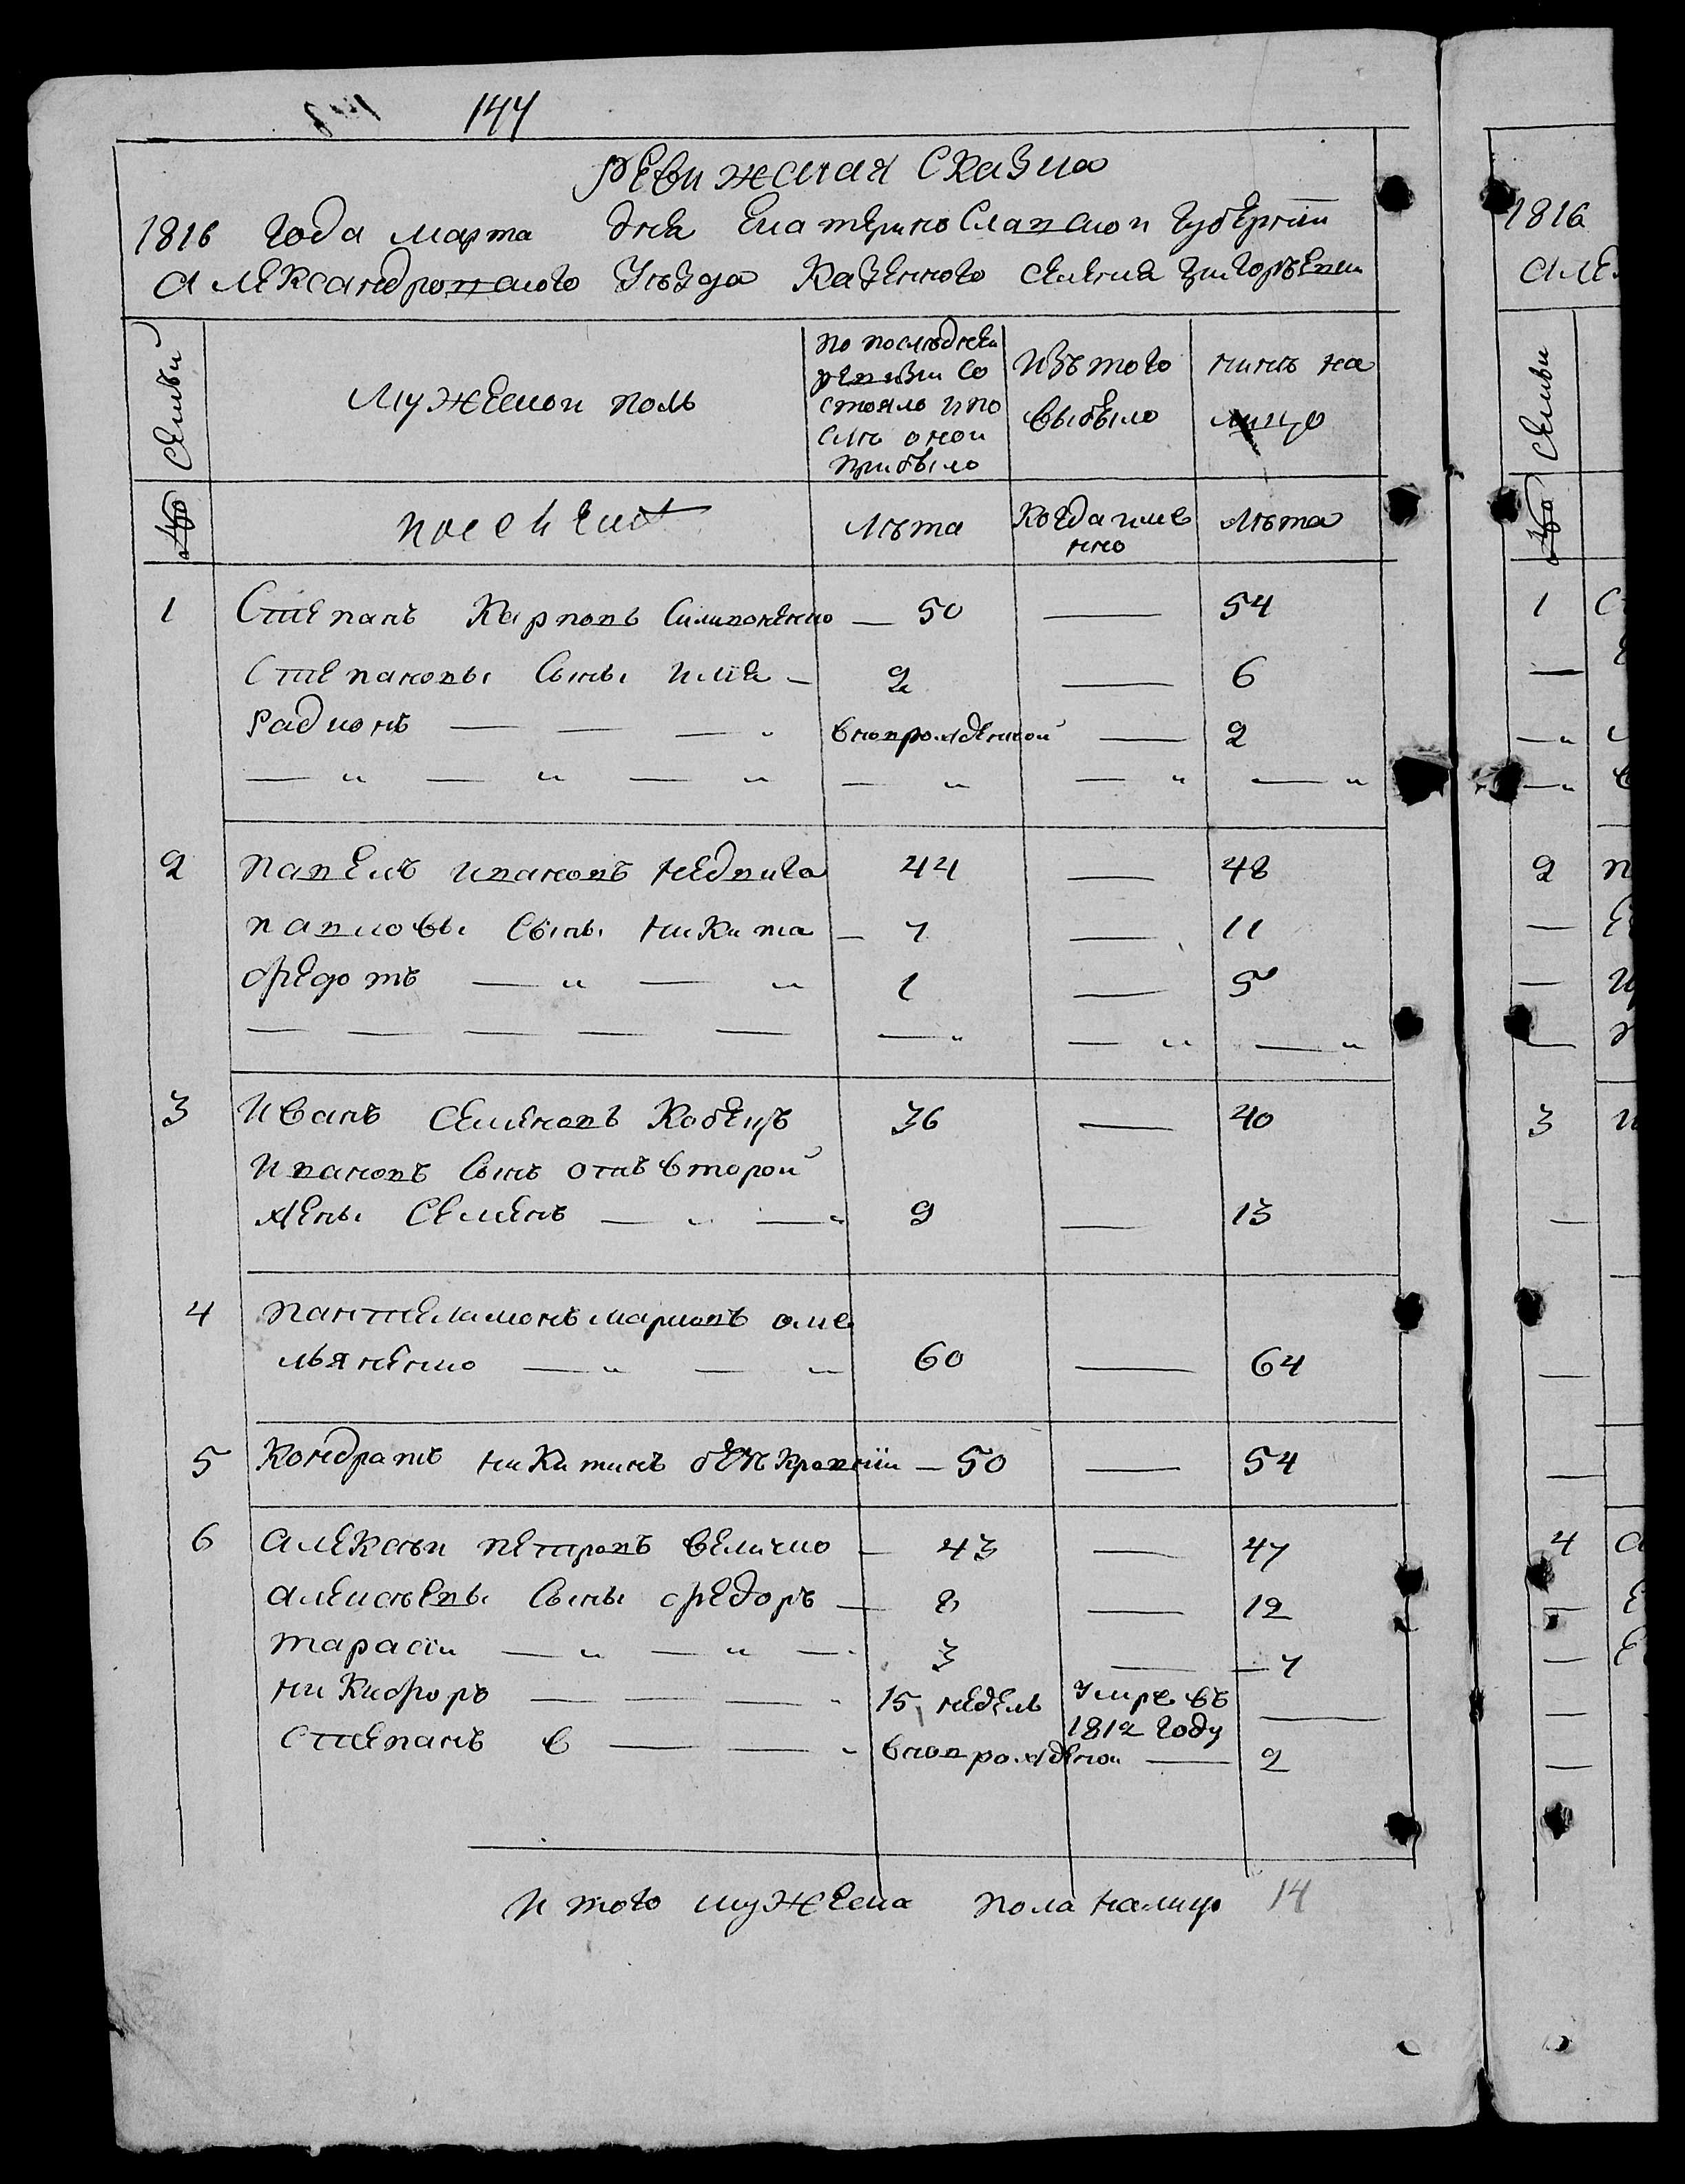 144
Ревижская Сказка
1816 Года марта дня Екатериносла̲вской Губернїи
александро̲вского Уѣзда Казенного селения Григорьевки
Семьи
Мужеской поль
По последней ревизіи состояло и после оной прибыло
Изъ того выбыло
нинѣ на лицо
№
Лѣта
Когда имено
Лѣта
1 Степанъ Карповъ Симоненко — 50 — 54
Степановы Сынъı Илїя — 2 — 6
Радионъ — — — " вновьрожденной — 2
— " — " — " — " — " — "
2 Павелъ ивановъ недвига 44 — 48
павловы Сынъı никита — 7 — 11
федотъ — " — " 1 — 5
— — — — — — " — " — "
3 Иванъ Семеновъ Кобецъ 36 — 40
Ивановъ Сынъ отъ второй
жены Семенъ — " — " 9 — 13
4 Пантелимонъ марковъ оме
льяненко — " — " 60 — 64
5 Кондратъ никитинъ — 50 — 54
6 алексѣи петровъ величко — 43 — 47
алексѣевы Сынъı федоръ — 8 — 12
тарасіи — " — " — 3 — 7
никифоръ — — — " 15 недель Умре въ 1812 Году —
Степанъ в — — " вноврожденои — 2
Итого мужеска пола налицо 14
1816
Семьи
№
1
2
3
4